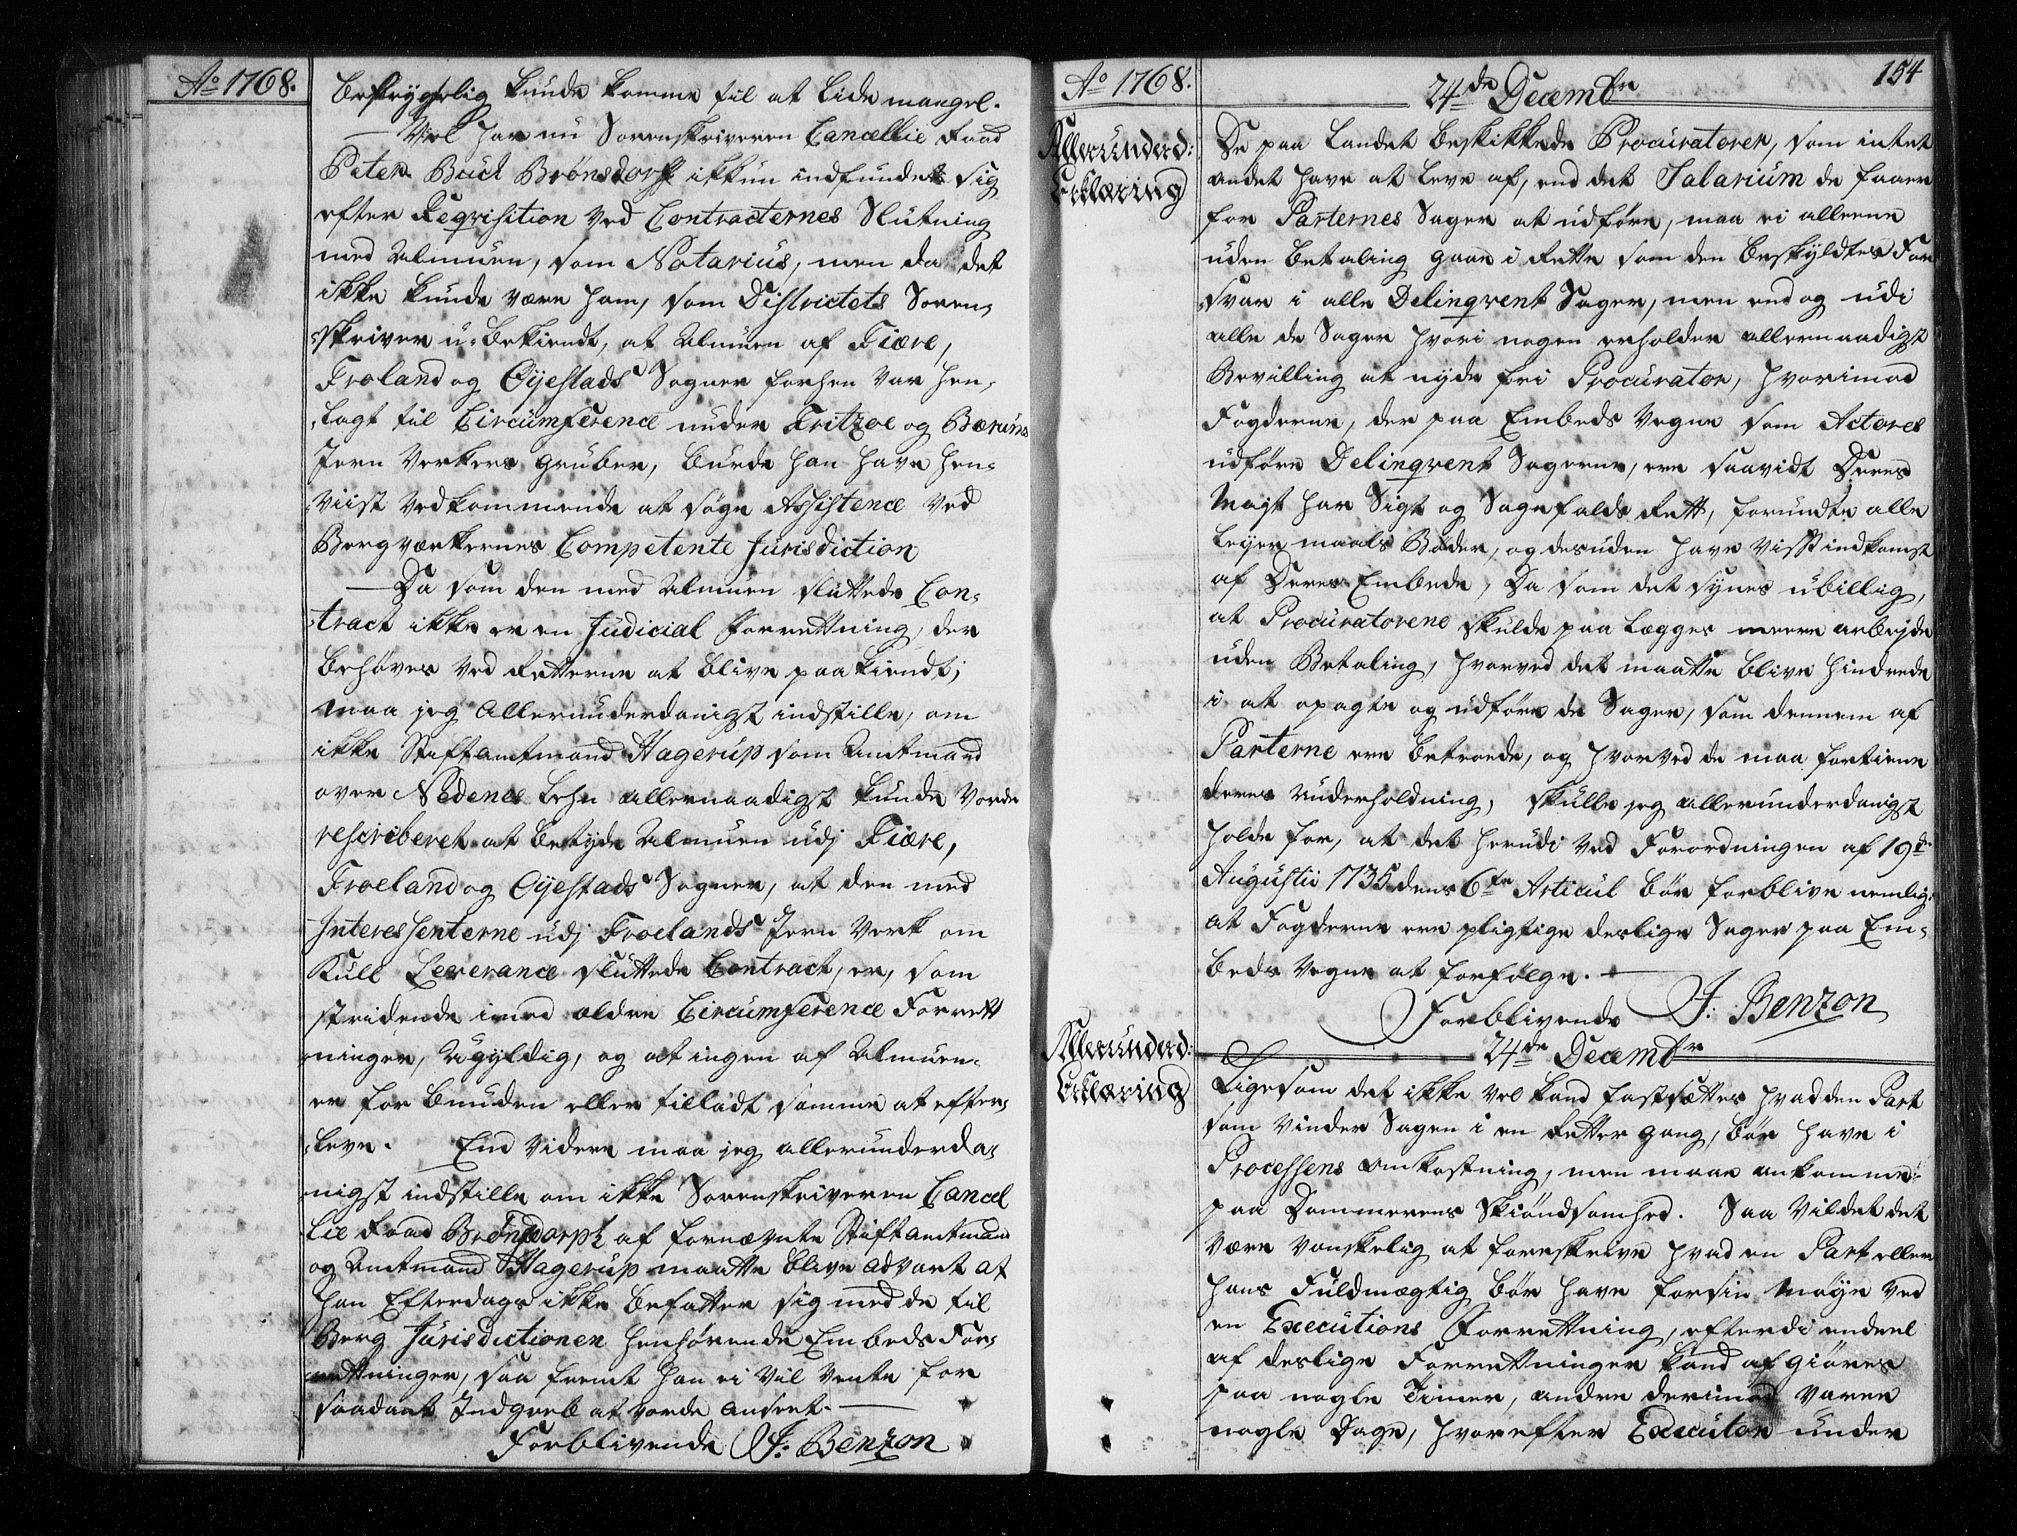 Ao 1768.
befrygtelig kunde komme til at lide mangel.
Vel har nu Sorenskriveren Cancellie Raad
Peter Buch Brønsdorph ikkun indfundet sig
efter Reqvisition ved Contracternes Slutning
med Almuen, som Notarius, men da det
ikke kunde være ham, som Districtets Soren-
skriver u-bekiendt, at Almuen af Fiære,
Froland og Øyestads Sogner forhen var hen-
lagt til Circumference under Fritzoe og Bærums
Jern Verkers Gruber, burde han have hen-
viist vedkommende at søge Assistence ved
Bergværkernes Competente Jurisdiction
Da som den med Almuen sluttede Con-
tract ikke er en Judicial Forrettning, der
behøves ved Retterne at blive paakiendt;
maa jeg allerunderdanigst indstille, om
ikke Stiftamtmand Hagerup som Amtmand
over Nedenes Lehn allernaadigst kunde vorde
rescriberet at betyde Almuen udj Fiære,
Froeland og Øyestads Sogner, at den med
Interessenterne udj Froelands Jern Verk om
Kull Leverance sluttede Contract, er, som
stridende imod ældre Circumference Forrett
ninger, Ugyldig, og at ingen af Almuen-
er forbunden eller tilladt samme at efter-
leve. End videre maa jeg allerunderda-
nigst indstille om ikke Sorenskriveren Cancel
lie Raad Brønsdorph af fornævnte Stiftamtmand
og Amtmand Hagerup maatte blive advaret at
han Efterdags ikke befatter sig med de til
Berg Jurisdictionen henhørende Embeds For-
rettninger, saa fremt han ei vil vente for
saadant Indgreb at vorde anseet.
Forblivende J: Benzon
Ao 1768.
154
24de Decembre
Allerunderd:
Erklæring
De paa Landet beskikkede Procuratorer, som intet
andet have at leve af, end det Salarium de faaer
for Parternes Sager at udføre, maa ei alleene
uden betaling gaae i Rette som den beskyldtes For
svar i alle Delinqvent Sager, men end og udi
alle de Sager hvori nogen erholder allernaadigst
Bevilling at nyde fri Procurator, hvorimod
Fogderne, der paa Embeds Vegne som Actores
udføre Delinqvent Sagerne, ere saavidt Deres
Magt har Sigt og Sagefalds Rett, forundte alle
Leyermaals Bøder, og desuden have visst indkomst
af Deres Embede, Da som det synes ubillig,
at Procuratorene skulde paa lægges meere arbejde
uden Betaling, hvorved det maatte blive hindrede
i at opagte og udføre de Sager, som dennem af
Parterne ere betroede, og hvorved de maa fortiene
deres Underholdning, skulle jeg allerunderdanigst
holde for, at det herudi ved Forordningen af 19de
Augustii 1735 dens 6te Articul bør forblive nemlig:
at Fogderne ere pligtige deslige Sager paa Em-
beds Vegne at forfølge.
Forblivende J: Benzon
24de Decembr
Allerunderd:
Erklæring
Ligesom det ikke vel kand fastsættes hvad den Part
som vinder Sagen i en Rettergang, bør have i
Processens omkostning, men maae ankomme
paa Dommerens Skiøndsomhed. Saa vil det det
være vanskelig at foreskrive hvad en Part eller
hans Fuldmægtig bør have for sin Møye ved
en Executions Forrettning, efterdi endeel
af deslige Forrettninger kand afgiøres
paa nogle Timer, andre derimod varer
nogle Dage, hvorefter Executor under